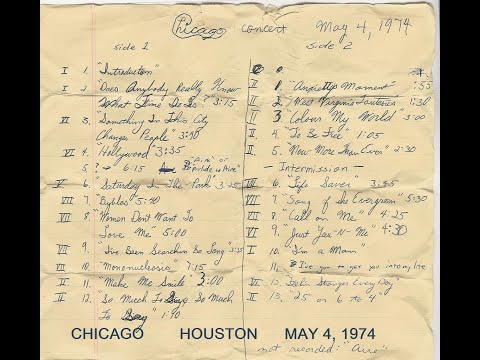 Chicago concert May 4, 1974
side 1
I 1. "Introduction"
I 2. "Does Anybody Really Know
What Time It Is" 3:15
VI 3. Something In This City
Changes People" 3:40
VI 4. "Hollywood" 3:35
5. ? → 6:15
V 6. "Saturday In The Park" 3:25
VII 7. "Byblos" 5:40
VII 8. "Women Don't Want To
Love Me" 5:00
9. "I've Been Searchin So Long" 3:35
10. "Mononucleosis" 7:15
II 11. "Make Me Smile" 3:00
II 12. "So Much To Say, So Much
To 1:40
side 2
0 0
II 1 "Anxiety's Moment" :55
II 2 "West Virginia Fantasies" 1:30
II 3 "Colour My World" 3:00
II 4. "To Be Free" 1:05
II 5. "Now More Than Ever" 2:30
— Intermission —
VII 6. "Life Saver" 3:35
VII 7. "Song of the Evergreens" 5:30
VII 8. "Call on Me" 4:25
VI 9. "Just You -N- Me" 4:30
I 10. "I'm a Man"
11. "I've got to get you into my life
VI 12. Feelin Stronger Every Day"
II 13. "25 or 6 to 4"
CHICAGO HOUSTON MAY 4, 1974
not recorded: "Aire"